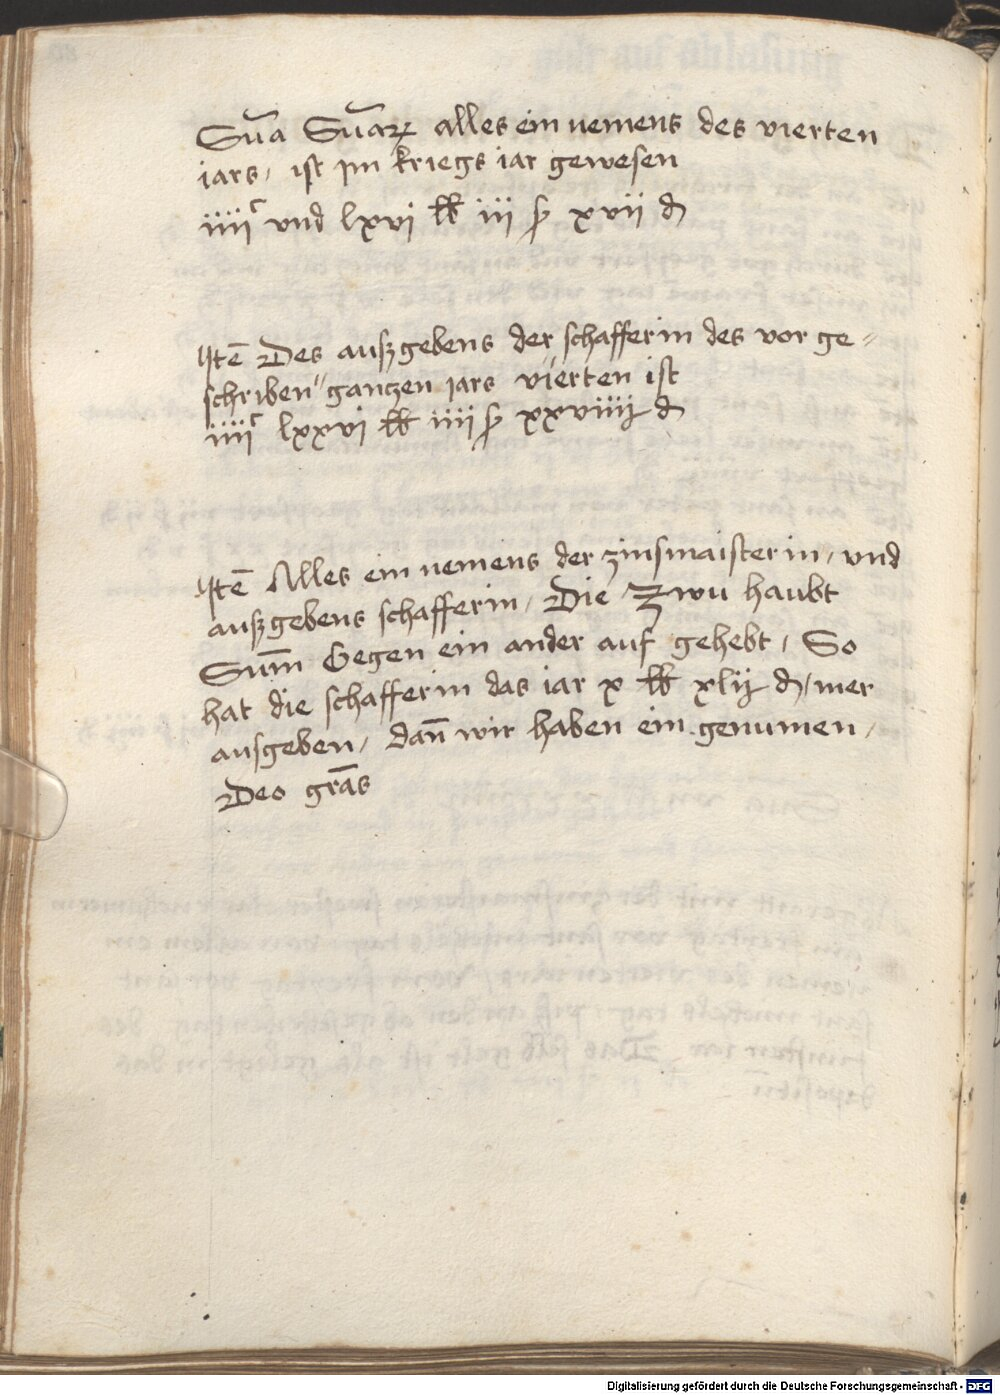 Sūa Sūaꝝ alles ein nemens des vierten
iars / ist jm kriegs iar gewesen
iiiiᶜ vnd lxvj ℔ iii ẞ xvii ₰
Itē Des auszgebens der schafferin des vor ge⸗
schriben ganczen jars vierten ist
iiiiᶜ lxxvj ℔ iiii ẞ xxviiij ₰
Itē Alles ein nemens der zinsmaisterin / vnd
auszgebens schafferin / Die Zwu haubt
Sum̄ Gegen ein ander auf gehebt / So
hat die schafferin das iar x ℔ xlij ₰ / mer
ausgeben / dan̄ wir haben ein genumen /
Deo grās
Digitalisierung gefördert durch die Deutsche Forschungsgemeinschaft - DFG